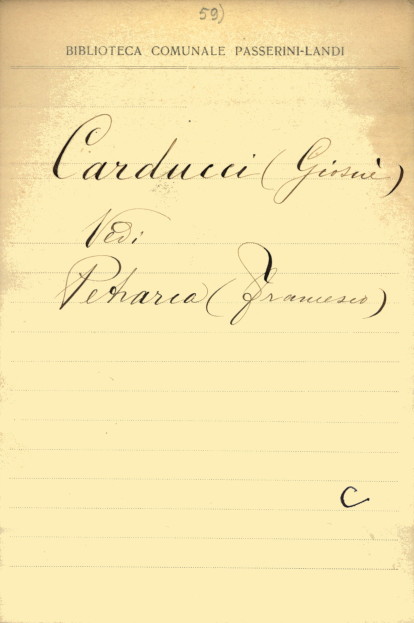 59)
BIBLIOTECA COMUNALE PASSERINI-LANDI
Carducci (Giosuè)
Vedi
Petrarca (Francesco)
C